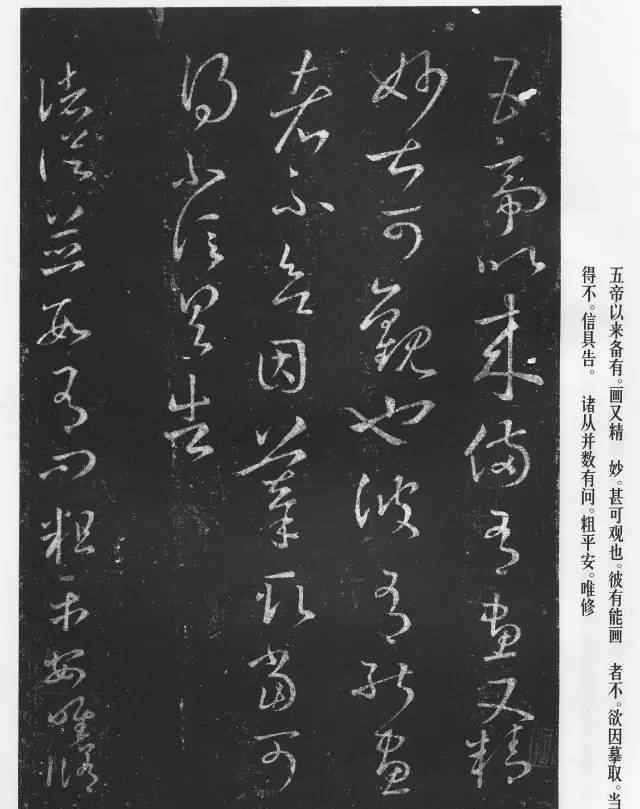 五帝以来备有。画又精 妙。甚可观也。彼有能画 者不。欲因摹取。当
得不。信具告。 诸从并数有问。粗平安。唯修
五帝以来備有畫又精
妙甚可觀也彼有能畫
者不欲因摹取當可
得不信具告
諸從並數有問粗平安唯脩